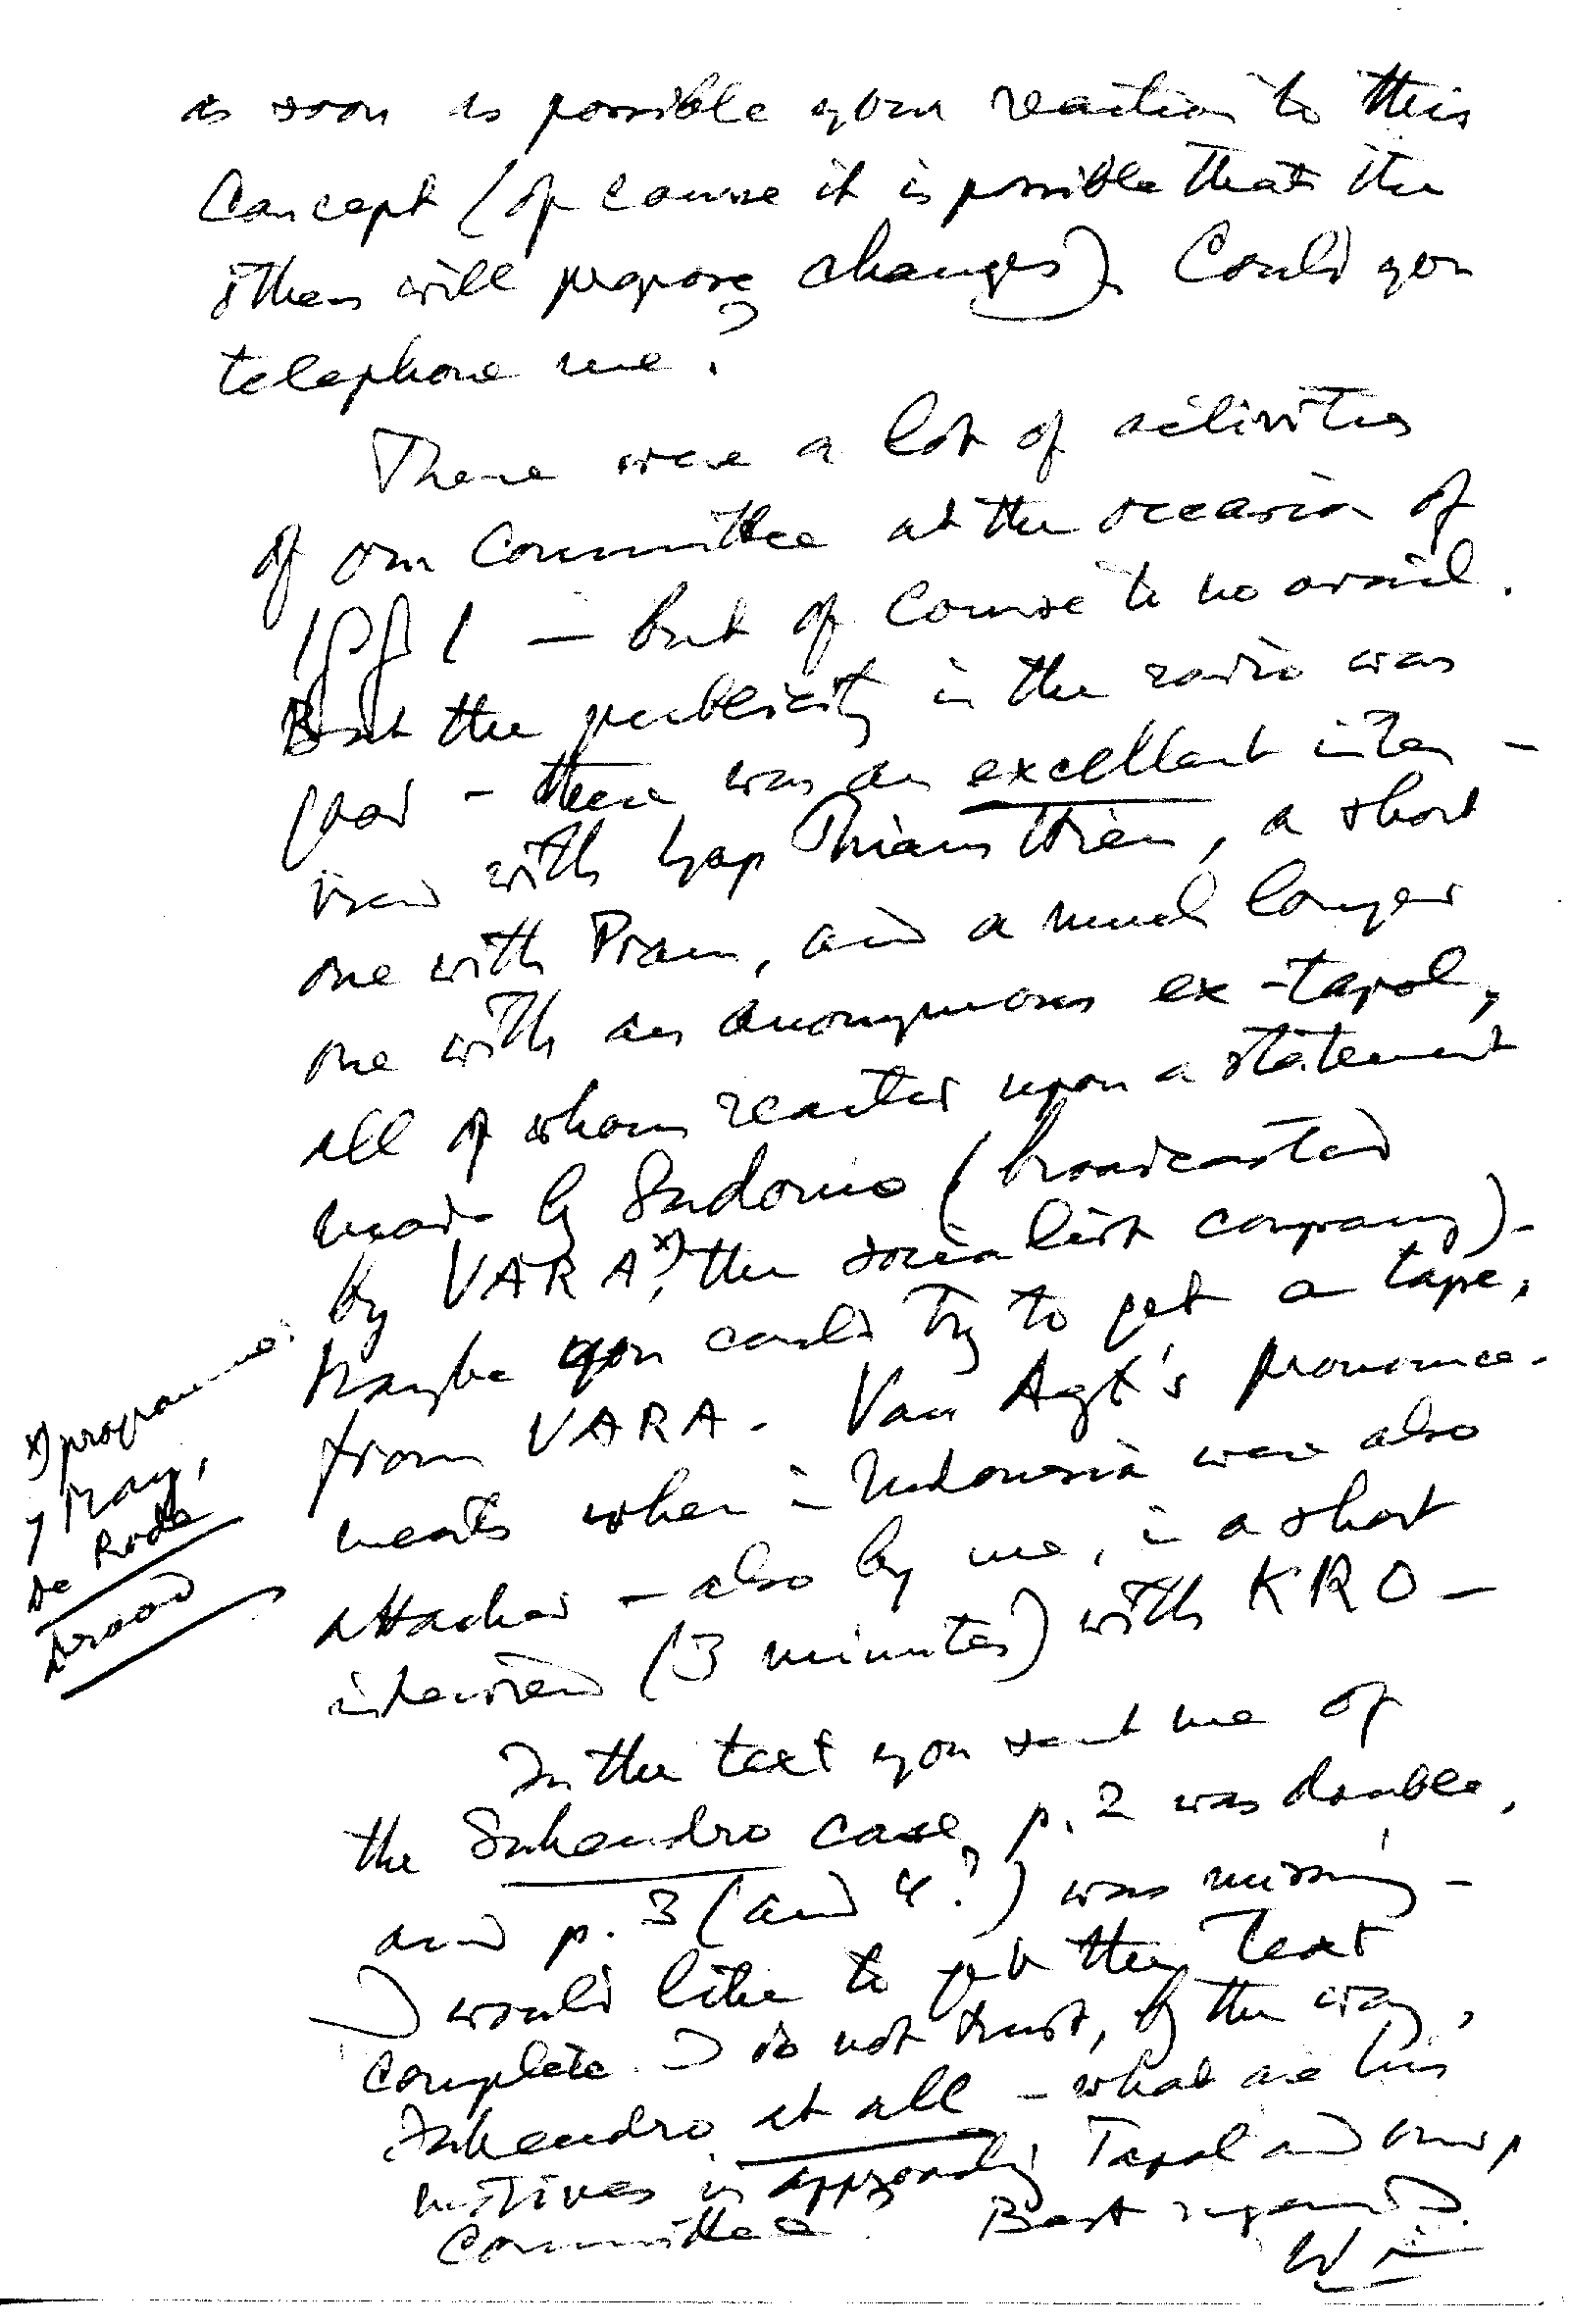 as soon as possible your reaction to this
concept (of course it is possible that the
others will propose changes). Could you
telephone me?
There were a lot of activities
of our Committee at the occasion of
IGGI — but of course to no avail.
But the publicity in the radio was
good - there was an excellent inter-
view with Yap Thiam Hien, a short
one with Pram, and a much longer
one with an anonymous ex-tapol,
all of whom reacted upon a statement
made by Sudomo (broadcasted
by VARA x), the socialist company) -
Maybe you could try to get a tape,
from VARA. Van Agt's pronounce-
ments when in Indonesia were also
attacked - also by me, in a short
interview (3 minutes) with KRO -
In the text you sent me of
the Suhendro case, p. 2 was double,
and p. 3 (and 4?) was missing -
I would like to get the text
complete. I do not trust, by the way,
Suhendro at all - what are his
motives in approaching Tapol and our
Committee? Best regards.
Wim
x) programme
7 May,
De Rode
Draad